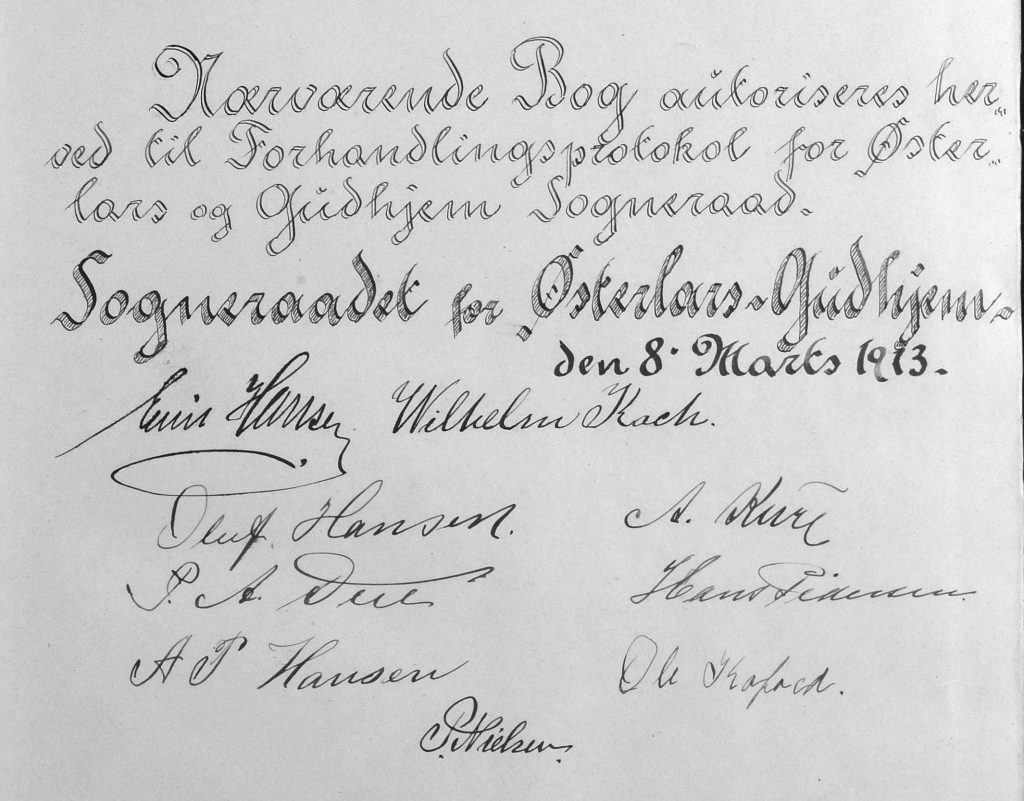 Nærværende Bog autoriseres her„
ved til Forhandlingsprotokol for Øster„
lars og Gudhjem Sogneraad.
Sogneraadet for Østerlars-Gudhjem-
den 8' Marts 1913.
Emil Hansen Wilhelm Koch.
Oluf Hansen. A. Kure
P. A. Hans Pedersen
A P Hansen Ole Kofoed.
P. Nielsen.